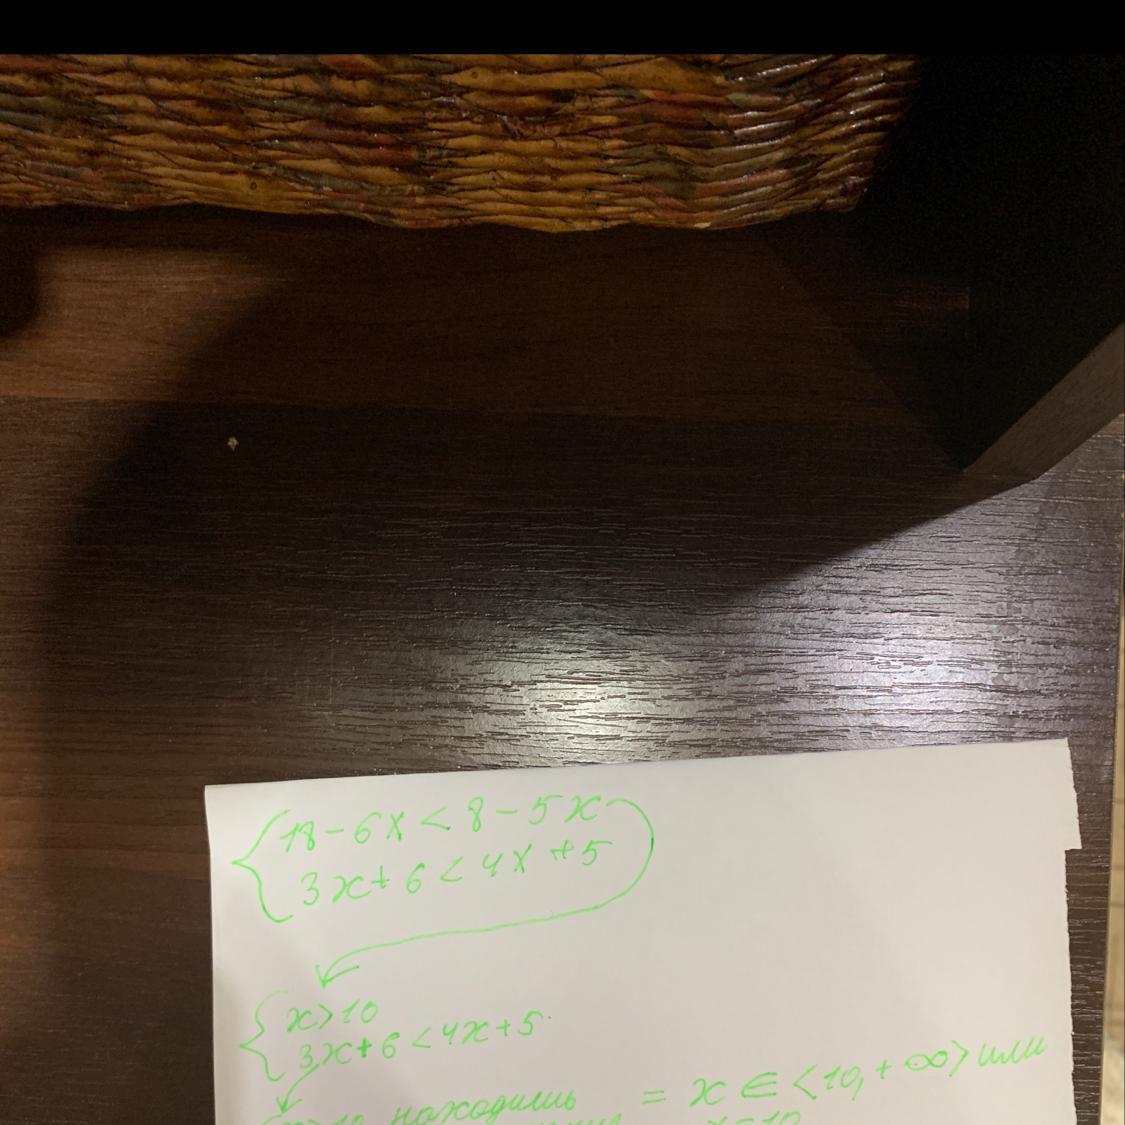 18-6x<8-5x
3x+6<4x+5
x>10
3x+6<4x+5
находишь = x ∈ <10,+∞> или